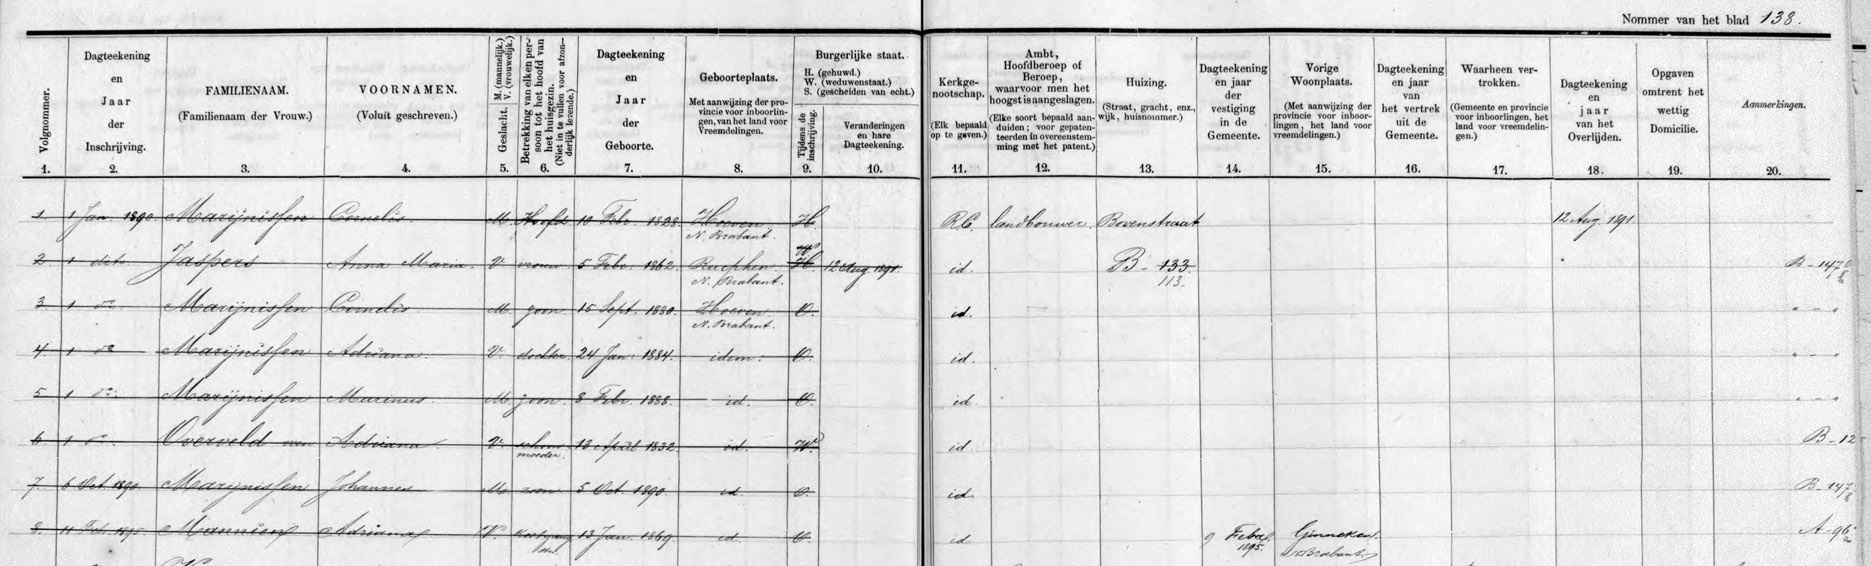 Nommer van het blad 138.
Volgnommer.
1.
Dagteekening
en
Jaar
der
Inschrijving.
2.
FAMILIENAAM.
(Familienaam der Vrouw.)
3.
VOORNAMEN.
(Voluit geschreven.)
4.
Geslacht. M. (mannelijk.) V. (vrouwelijk.)
5.
Betrekking van elken persoon tot het hoofd van het huisgezin.
(Niet in te vullen voor afzonderlijk levende.)
6.
Dagteekening
en
Jaar
der
Geboorte.
7.
Geboorteplaats.
Met aanwijzing der provincie voor inboorlingen, van het land voor Vreemdelingen.
8.
Burgerlijke staat.
H. (gehuwd.)
W. (weduwenstaat.)
S. (gescheiden van echt.)
Tijdens de inschrijving.
9.
Veranderingen
en hare
Dagteekening.
10.
Kerkge-
nootschap.
(Elk bepaald
op te geven.)
11.
Ambt,
Hoofdberoep of
Beroep,
waarvoor men het
hoogst is aangeslagen.
(Elke soort bepaald aan-
duiden; voor gepaten-
teerden in overeenstem-
ming met het patent.)
12.
Huizing.
(Straat, gracht, enz.,
wijk, huisnommer.)
13.
Dagteekening
en jaar
der
vestiging
in de
Gemeente.
14.
Vorige
Woonplaats.
(Met aanwijzing der
provincie voor inboor-
lingen, het land voor
vreemdelingen.)
15.
Dagteekening
en jaar
van
het vertrek
uit de
Gemeente.
16.
Waarheen ver-
trokken.
(Gemeente en provincie
voor inboorlingen, het
land voor vreemdelin-
gen.)
17.
Dagteekening
en
jaar
van het
Overlijden.
18.
Opgaven
omtrent het
wettig
Domicilie.
19.
Aanmerkingen.
20.
1 1 Jan. 1890. Marijnissen Cornelis M. Hoofd 10 Febr. 1828. Hoeven N. Brabant. H. R.C. landbouwer. Bovenstraat 12 Aug. 1891.
2 1 dito Jaspers Anna Maria. V. vrouw 5 Febr. 1862. Rucphen N. Brabant. H W 12 Aug. 1891. id. B - 133. 113. B - 147
3 1 do. Marijnissen Cornelis M. zoon. 15 Sept. 1880. Hoeven. N. Brabant. O. id. " - "
4 1 do Marijnissen Adriana V. dochter 24 Jan. 1884. idem. O. id. " - "
5 1 do. Marijnissen Marinus M. zoon. 8 Febr. 1888. id. O. id. " - "
6 1 do. Overveld van Adriana V. schoonmoeder. 13 April 1832. id. W. id. B - 12
7. 6 Oct. 1890. Marijnissen Johannes M. zoon 5 Oct. 1890. id. O. id B - 147
8. 11 Feb. 1895 Adriana V. 13 Jan. 1869 id. O. id 9 Febr. 1895. Ginneken N. Brabant A - 96